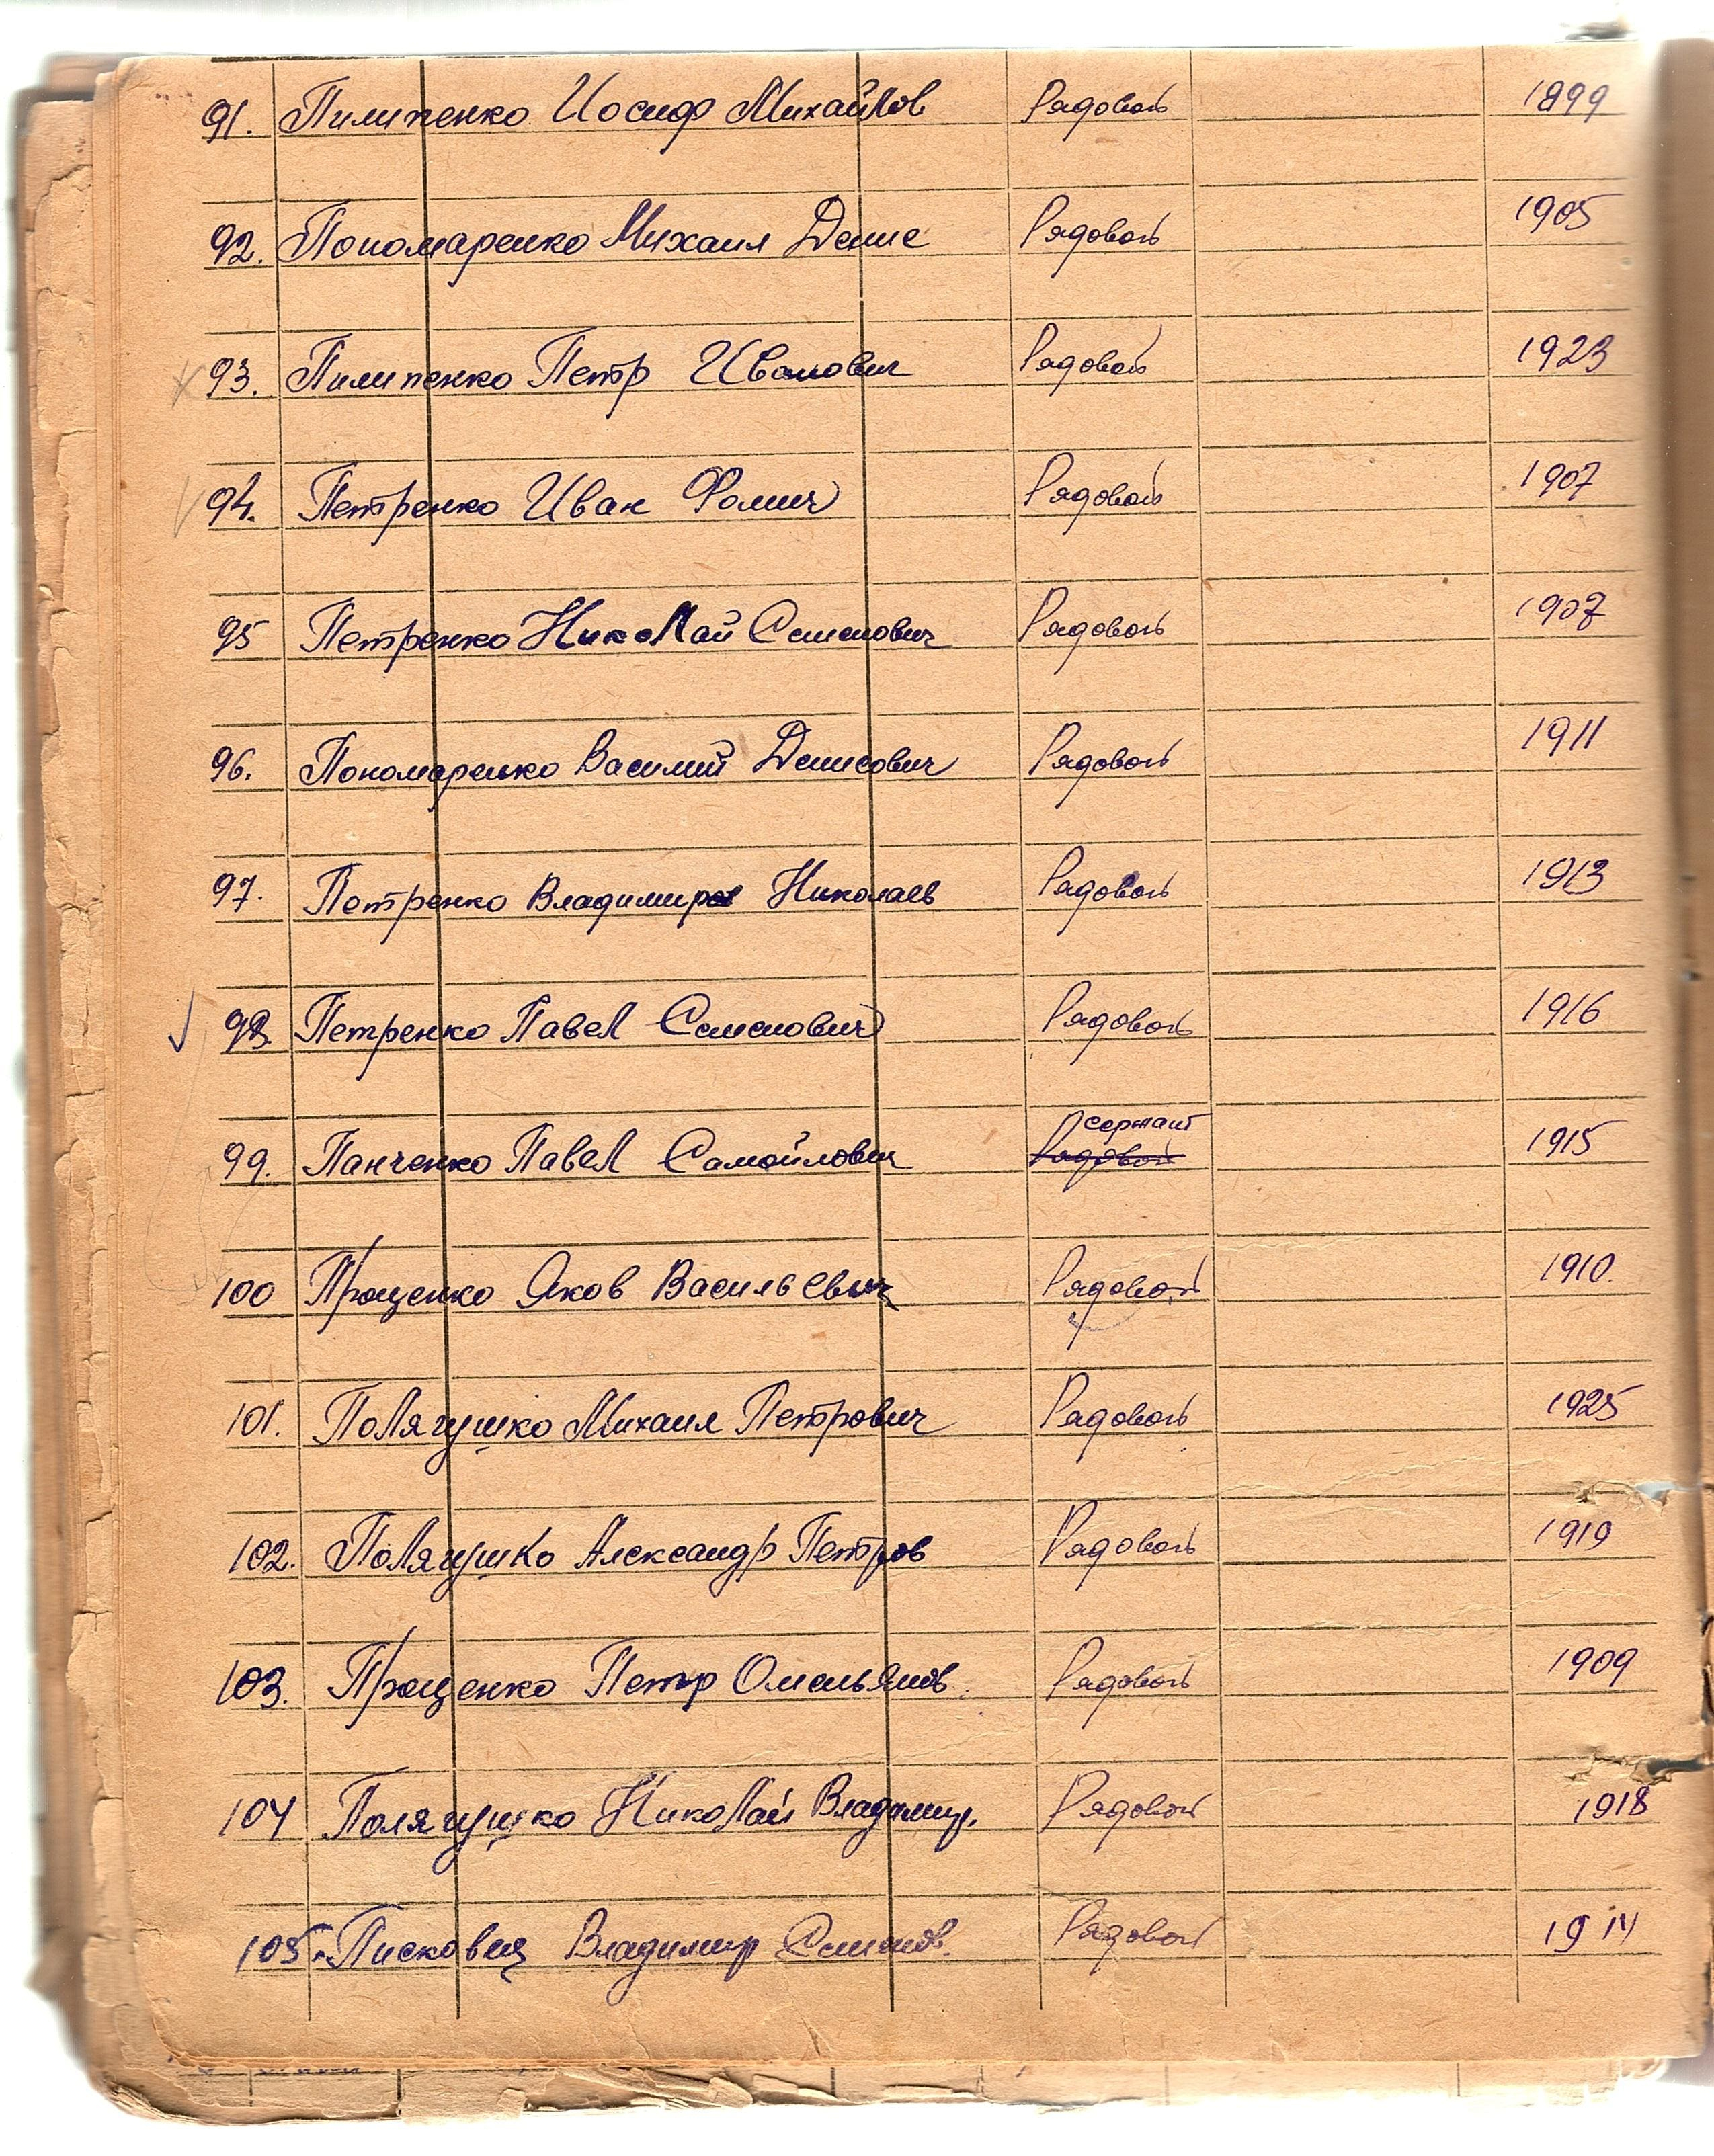 91. Пилипенко Иосиф Михайлов Рядовой 1899
92. Пономаренко Михаил Денис Рядовой 1905
93. Пилипенко Петр Иванович Рядовой 1923
94. Петренко Иван Фомич Рядовой 1907
95 Петренко Николай Семенович Рядовой 1907
96. Пономаренко Василий Денисович Рядовой 1911
97. Петренко Владимир Николаев Рядовой 1913
98. Петренко Павел Семенович Рядовой 1916
сержант
99. Панченко Павел Самойлович Рядовой 1915
100 Проценко Яков Васильевич Рядовой 1910.
101. Полягушко Михаил Петрович Рядовой 1925
102. Полягушко Александр Петров Рядовой 1919
103. Проценко Петр Омельянов. Рядовой 1909
104 Полягушко Николай Владимир. Рядовой 1918
105. Писковец Владимир Семенов. Рядовой 1914